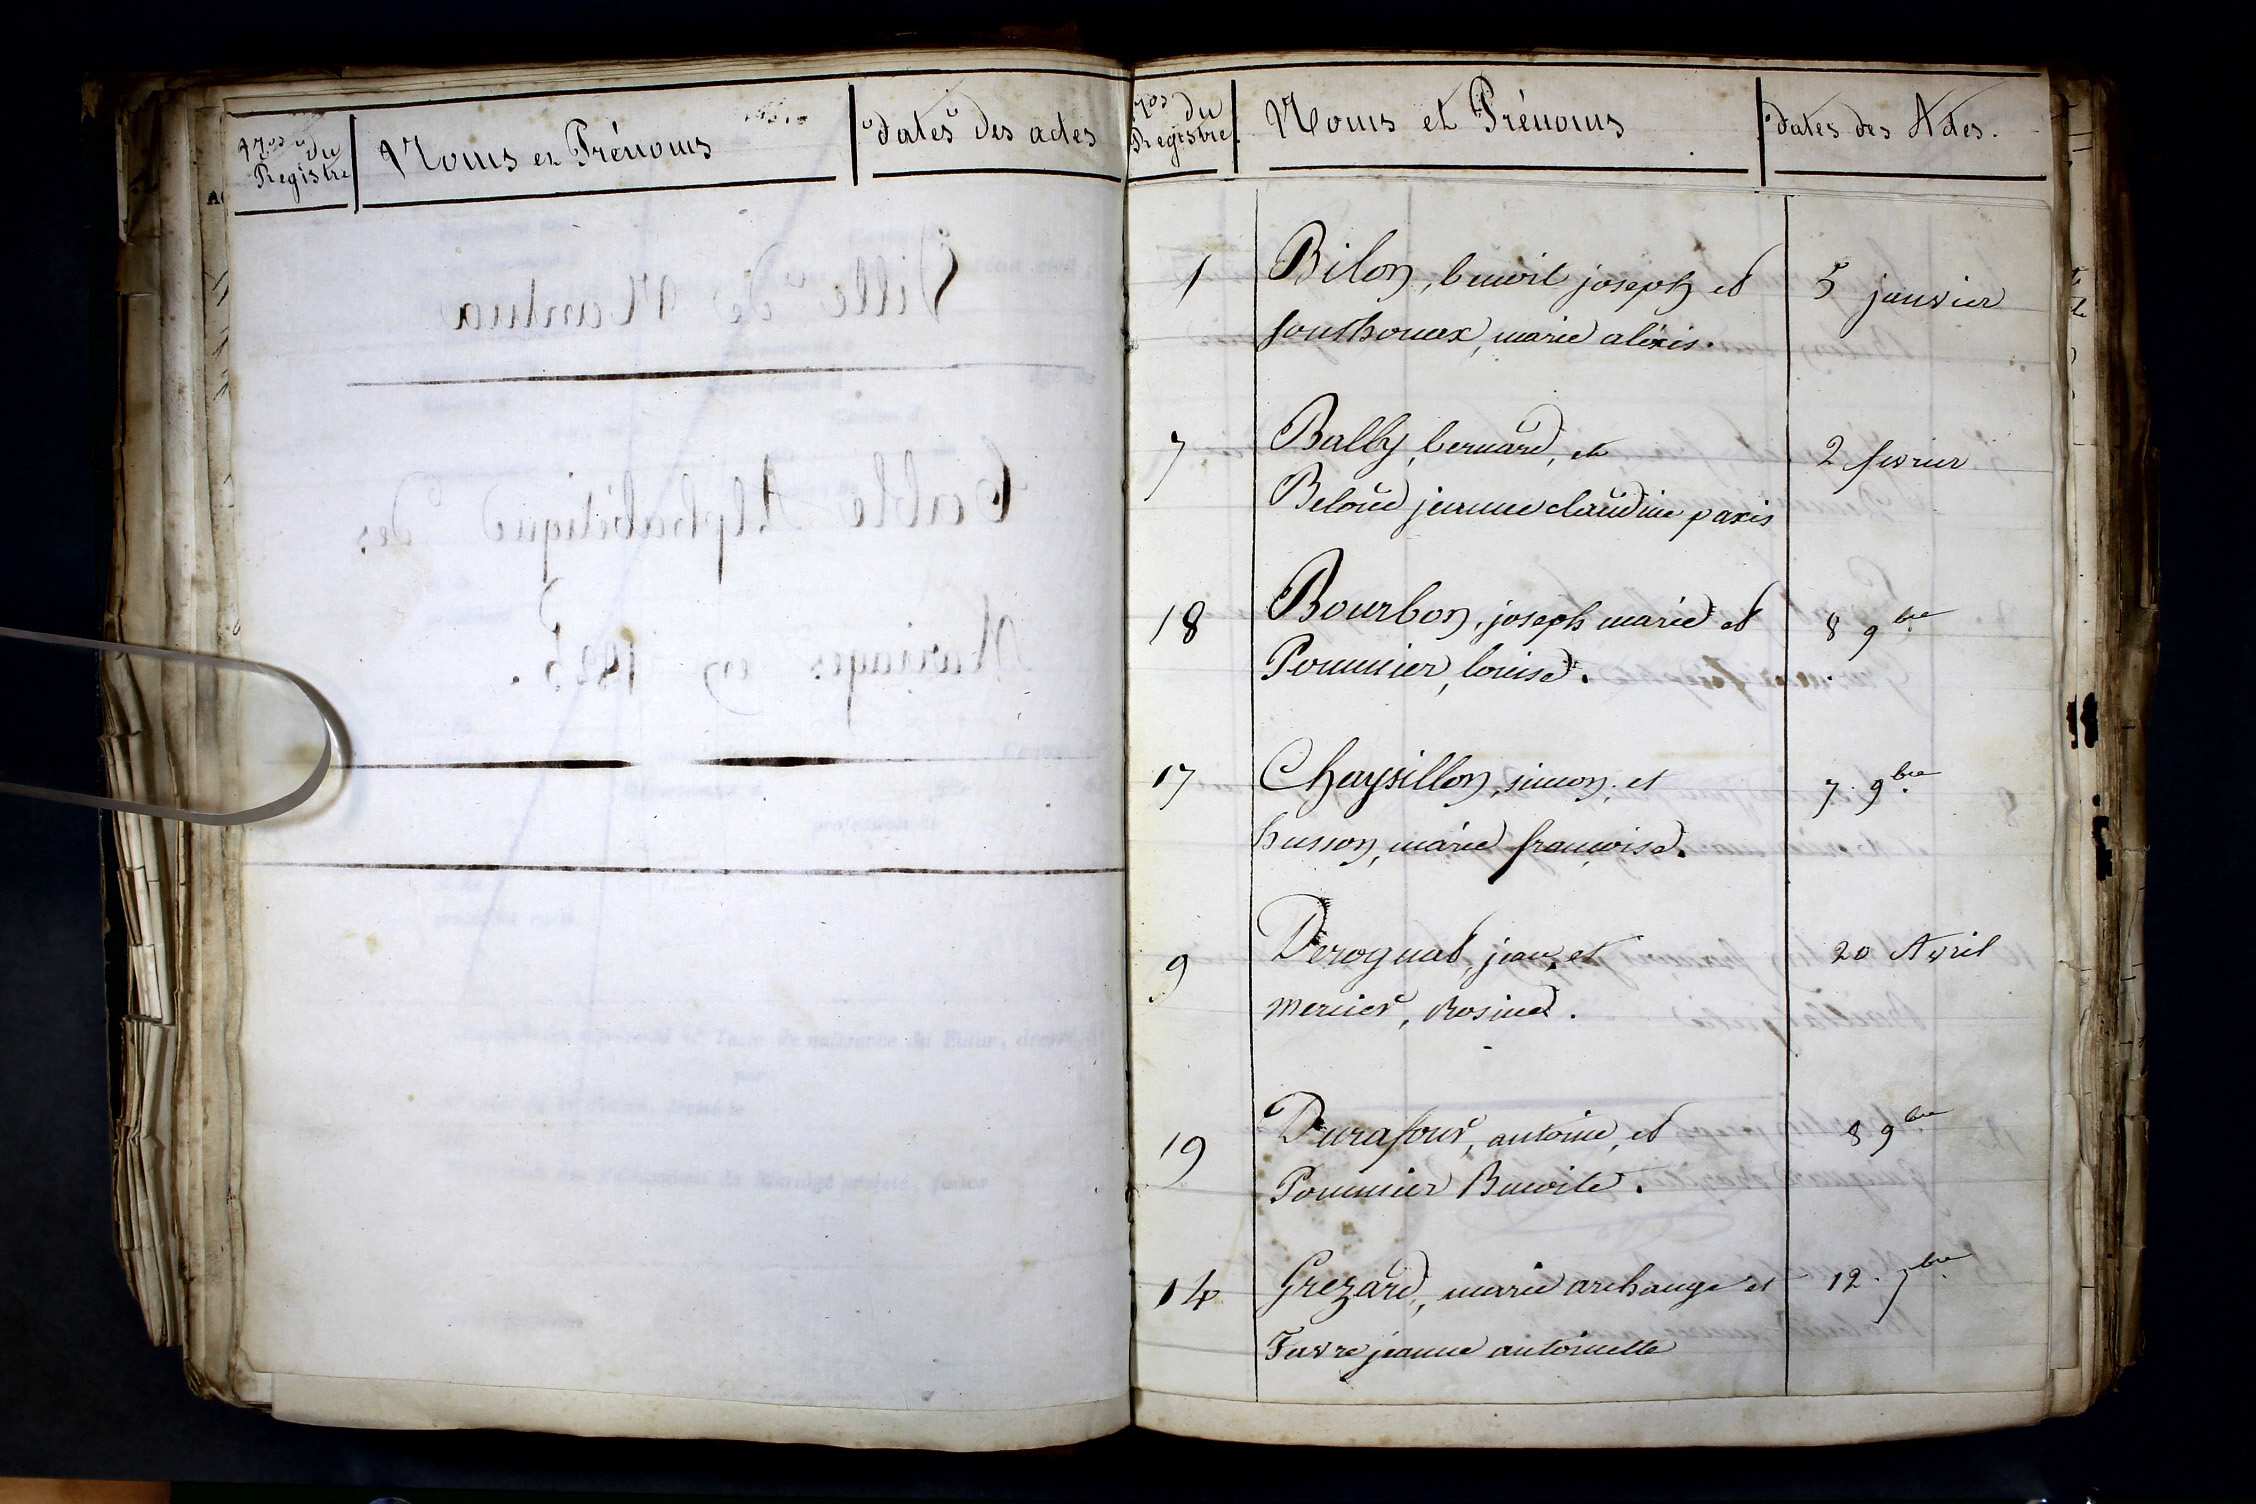 Nos du Registre
Noms et Prénoms
dates des actes
Nos du Registre
Noms et Prénoms
dates des Actes.
Ville de Nantua
Table Alphabétique des
Mariages en 1825.
1 Bilon, benoit joseph et 5 janvier
fonthonex, marie aléxis.
7 Bally, bernard, et 2 fevrier
Beloud jeanne claudine paxis
18 Bourbon, joseph marie et 8 9bre
Pommier, louise.
17 Chaysillon, simon, et 7. 9bre
husson, marie françoise.
9 Derognat, jean, et 20 Avril
mercier, Rosine.
19 Durafour, antoine, et 8 9bre
Pommier Benoite.
14 Grezard, marie archange et 12. 7bre
Favre jeanne antoinette